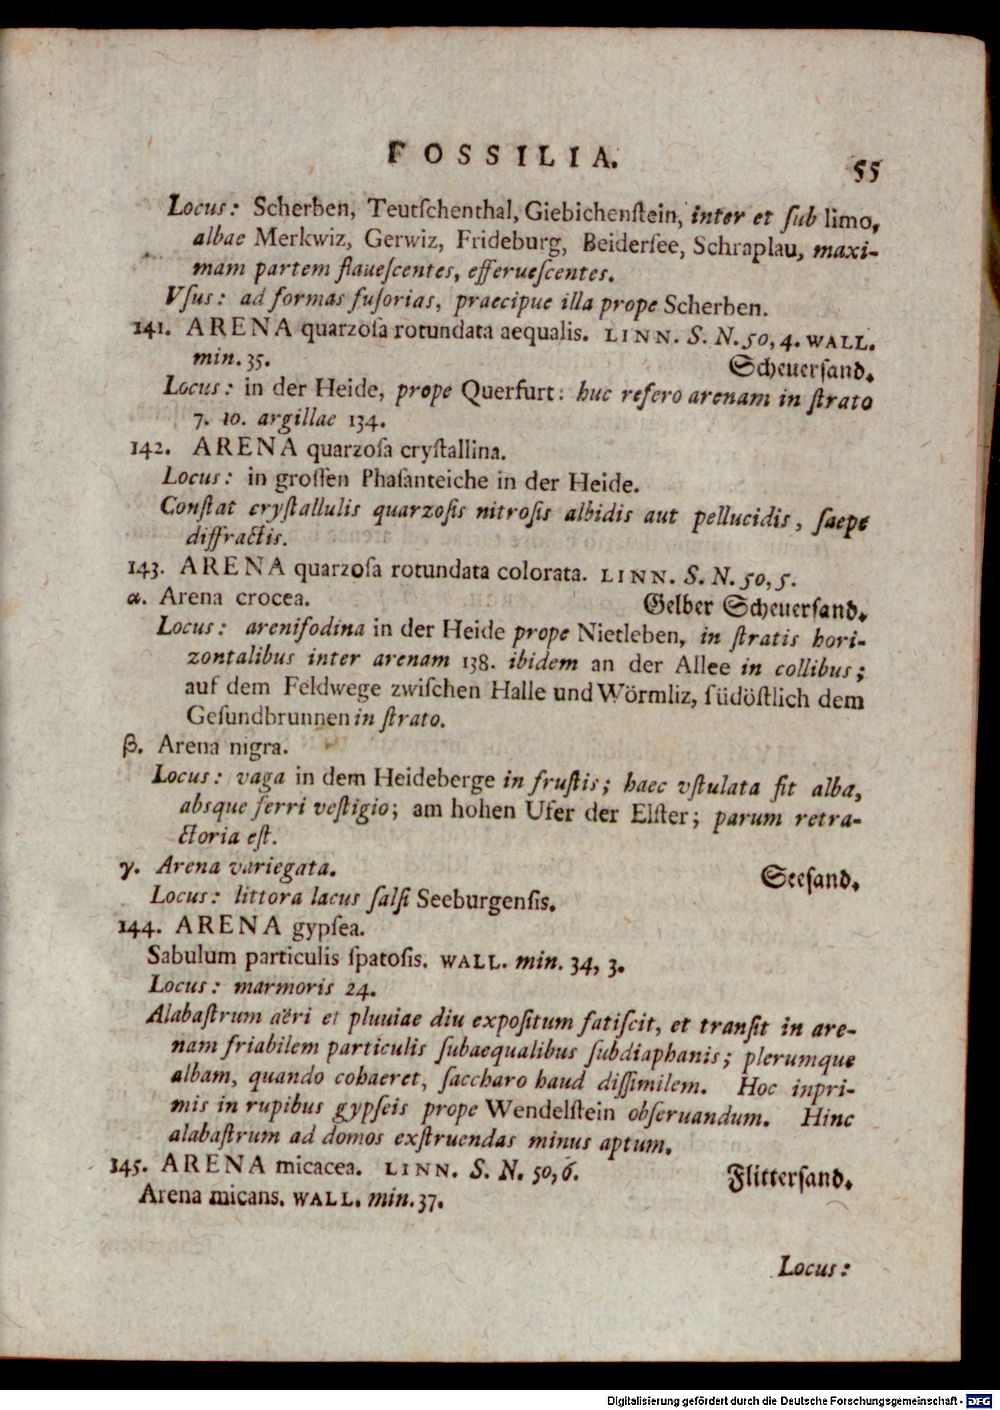 FOSSILIA.
55
Locus: Scherben, Teutſchenthal, Giebichenſtein, inter et ſub limo,
albae Merkwiz, Gerwiz, Frideburg, Beiderſee, Schraplau, maxi-
mam partem flaueſcentes, efferueſcentes.
Vſus: ad formas fuſorias, praecipue illa prope Scherben.
141. ARENA quarzoſa rotundata aequalis. LINN. S. N. 50, 4. WALL.
min. 35. Scheuerſand.
Locus: in der Heide, prope Querfurt: huc refero arenam in ſtrato
7. 10. argillae 134.
142. ARENA quarzoſa cryſtallina.
Locus: in groſſen Phaſanteiche in der Heide.
Conſtat cryſtallulis quarzoſis nitroſis albidis aut pellucidis, ſaepe
diffractis.
143. ARENA quarzoſa rotundata colorata. LINN. S. N. 50, 5.
α. Arena crocea. Gelber Scheuerſand.
Locus: arenifodina in der Heide prope Nietleben, in ſtratis hori-
zontalibus inter arenam 138. ibidem an der Allee in collibus;
auf dem Feldwege zwiſchen Halle und Wörmliz, ſüdöſtlich dem
Geſundbrunnen in ſtrato.
β. Arena nigra.
Locus: vaga in dem Heideberge in fruſtis; haec vſtulata fit alba,
absque ferri veſtigio; am hohen Ufer der Elſter; parum retra-
ctoria eſt.
γ. Arena variegata. Seeſand.
Locus: littora lacus ſalſi Seeburgenſis.
144. ARENA gypſea.
Sabulum particulis ſpatoſis. WALL. min. 34, 3.
Locus: marmoris 24.
Alabaſtrum aëri et pluuiae diu expoſitum fatiſcit, et tranſit in are-
nam friabilem particulis ſubaequalibus ſubdiaphanis; plerumque
albam, quando cohaeret, ſaccharo haud diſſimilem. Hoc inpri-
mis in rupibus gypſeis prope Wendelſtein obſeruandum. Hinc
alabaſtrum ad domos exſtruendas minus aptum.
145. ARENA micacea. LINN. S. N. 50, 6. Flitterſand.
Arena micans. WALL. min. 37.
Locus:
Digitalisierung gefördert durch die Deutsche Forschungsgemeinschaft - DFG